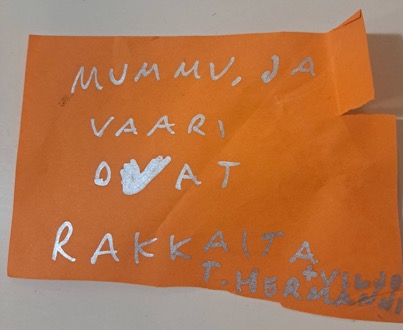 MUMMU, JA
VAARI
OVAT
RAKKAITA
T. HERMANNI
+ VILJO